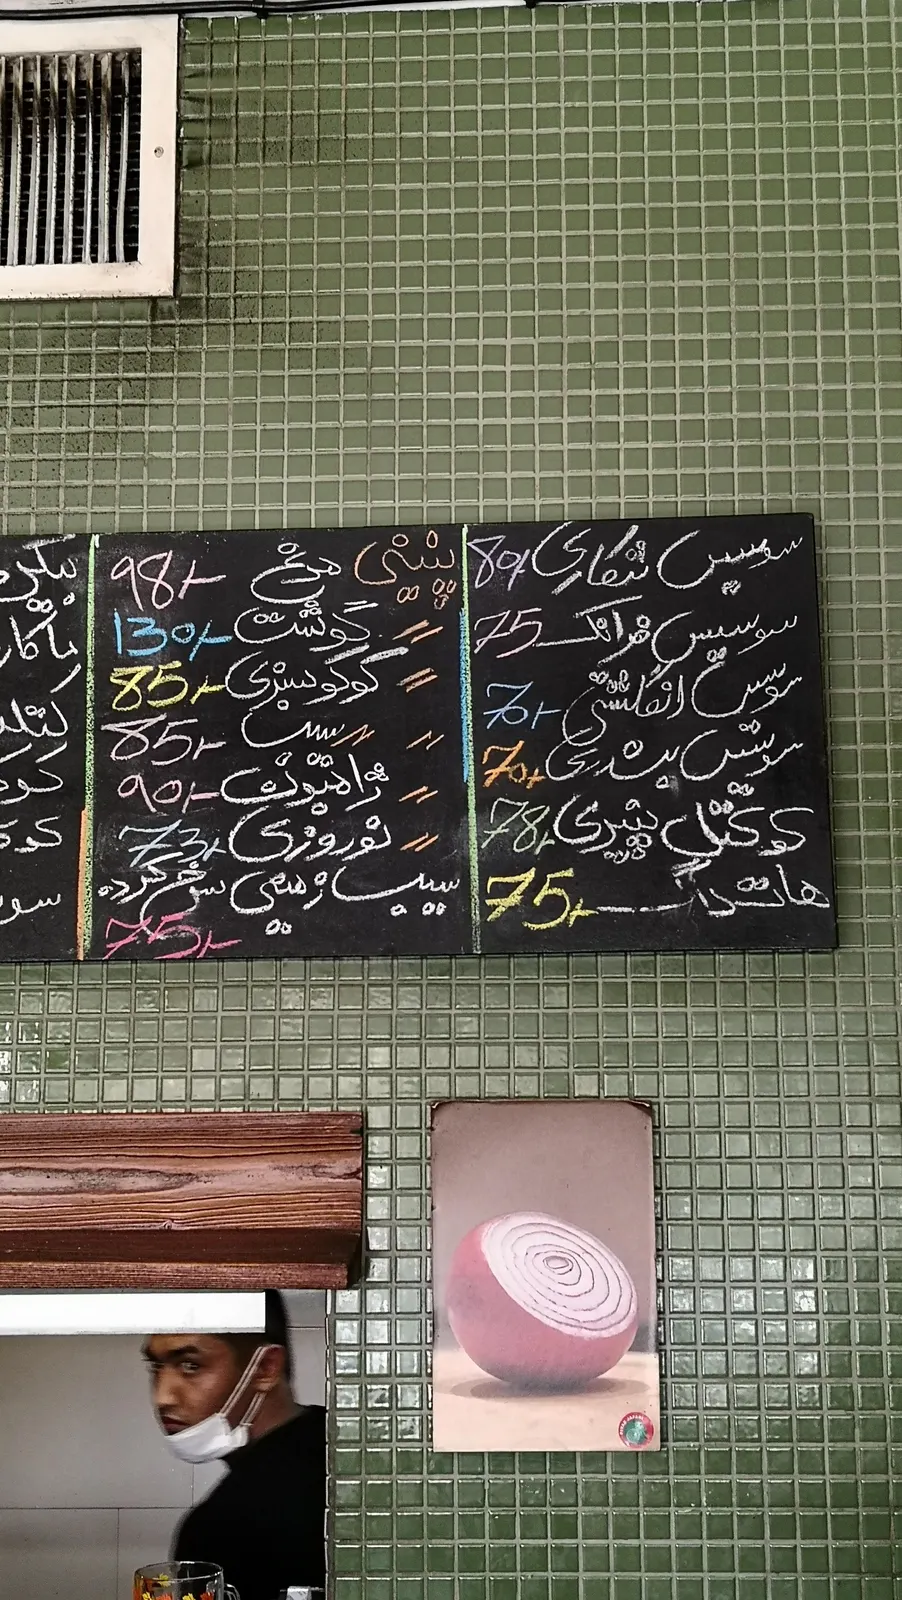 سوسیس شکاری 80/-
سوسیس فرانک 75
سوسیس انگشتی 70/-
سوسیس بندری 70/-
کوکتل پنیری 78/-
هات داگ 75/-
پیتی مرغ 98/-
〃 گوشت 130/-
〃 کوکو سبزی 85/-
〃 〃 سیب 85/-
〃 ژامبون 90/-
〃 نوروزی 73/-
سیب زمینی سرخ کرده
75/-